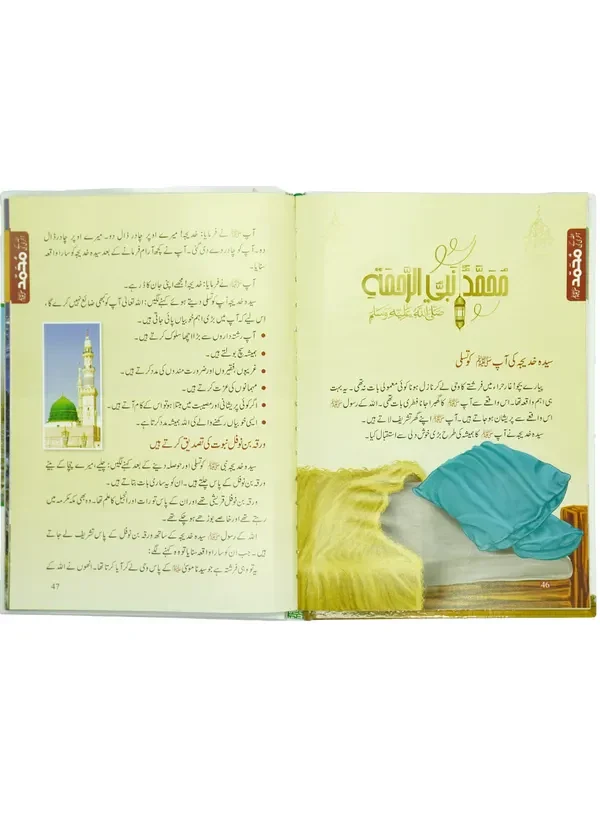 محمد ﷺ
مُحَمَّدٌ نَبِيُّ الرَّحْمَةِ
صَلَّی اللّٰهُ عَلَيْهِ وَسَلَّم
سیدہ خدیجہ کی آپ ﷺ کو تسلی
پیارے بچو! غار حراء میں فرشتے کا وحی لے کر نازل ہونا کوئی معمولی بات نہ تھی۔ یہ بہت
ہی اہم واقعہ تھا۔ اس واقعے سے آپ ﷺ کا گھبرا جانا فطری بات تھی۔ اللہ کے رسول ﷺ
اس واقعے سے پریشان ہو جاتے ہیں۔ آپ ﷺ اپنے گھر تشریف لاتے ہیں۔
سیدہ خدیجہ نے آپ ﷺ کا ہمیشہ کی طرح بڑی خوش دلی سے استقبال کیا۔
46
محمد ﷺ
آپ ﷺ نے فرمایا: خدیجہ! میرے اوپر چادر ڈال دو۔ میرے اوپر چادر ڈال
دو۔ آپ کو چادر دے دی گئی۔ آپ نے کچھ آرام فرمانے کے بعد سیدہ خدیجہ کو سارا واقعہ
سنایا۔
آپ ﷺ نے فرمایا: خدیجہ! مجھے اپنی جان کا ڈر ہے۔
سیدہ خدیجہ آپ کو تسلی دیتے ہوئے کہنے لگیں: اللہ تعالیٰ آپ کو کبھی ضائع نہیں کرے گا،
اس لیے کہ آپ میں بڑی اہم خوبیاں پائی جاتی ہیں۔
• آپ رشتہ داروں سے بڑا اچھا سلوک کرتے ہیں۔
• ہمیشہ سچ بولتے ہیں۔
• غریبوں، فقیروں اور ضرورت مندوں کی مدد کرتے ہیں۔
• مہمانوں کی عزت کرتے ہیں۔
• اگر کوئی پریشانی اور مصیبت میں مبتلا ہو تو اس کے کام آتے ہیں۔
• ایسی خوبیاں رکھنے والے کی اللہ ہمیشہ مدد کرتا ہے۔
ورقہ بن نوفل نبوت کی تصدیق کرتے ہیں
سیدہ خدیجہ نبی ﷺ کو تسلی اور حوصلہ دینے کے بعد کہنے لگیں: چلیے میرے چچا کے بیٹے
ورقہ بن نوفل کے پاس چلتے ہیں۔ ان کو یہ ساری بات بتاتے ہیں۔
ورقہ بن نوفل قریشی تھے اور ان کے پاس تورات اور انجیل کا علم تھا۔ وہ بھی مکہ مکرمہ میں
رہتے تھے اور خاصے بوڑھے ہو چکے تھے۔
اللہ کے رسول ﷺ سیدہ خدیجہ کے ساتھ ورقہ بن نوفل کے پاس تشریف لے جاتے
ہیں۔ جب ان کو سارا واقعہ سنایا تو وہ کہنے لگے:
یہ تو وہی فرشتہ ہے جو سیدنا موسیٰ کے پاس وحی لے کر آیا کرتا تھا۔ انھوں نے اللہ کے
47